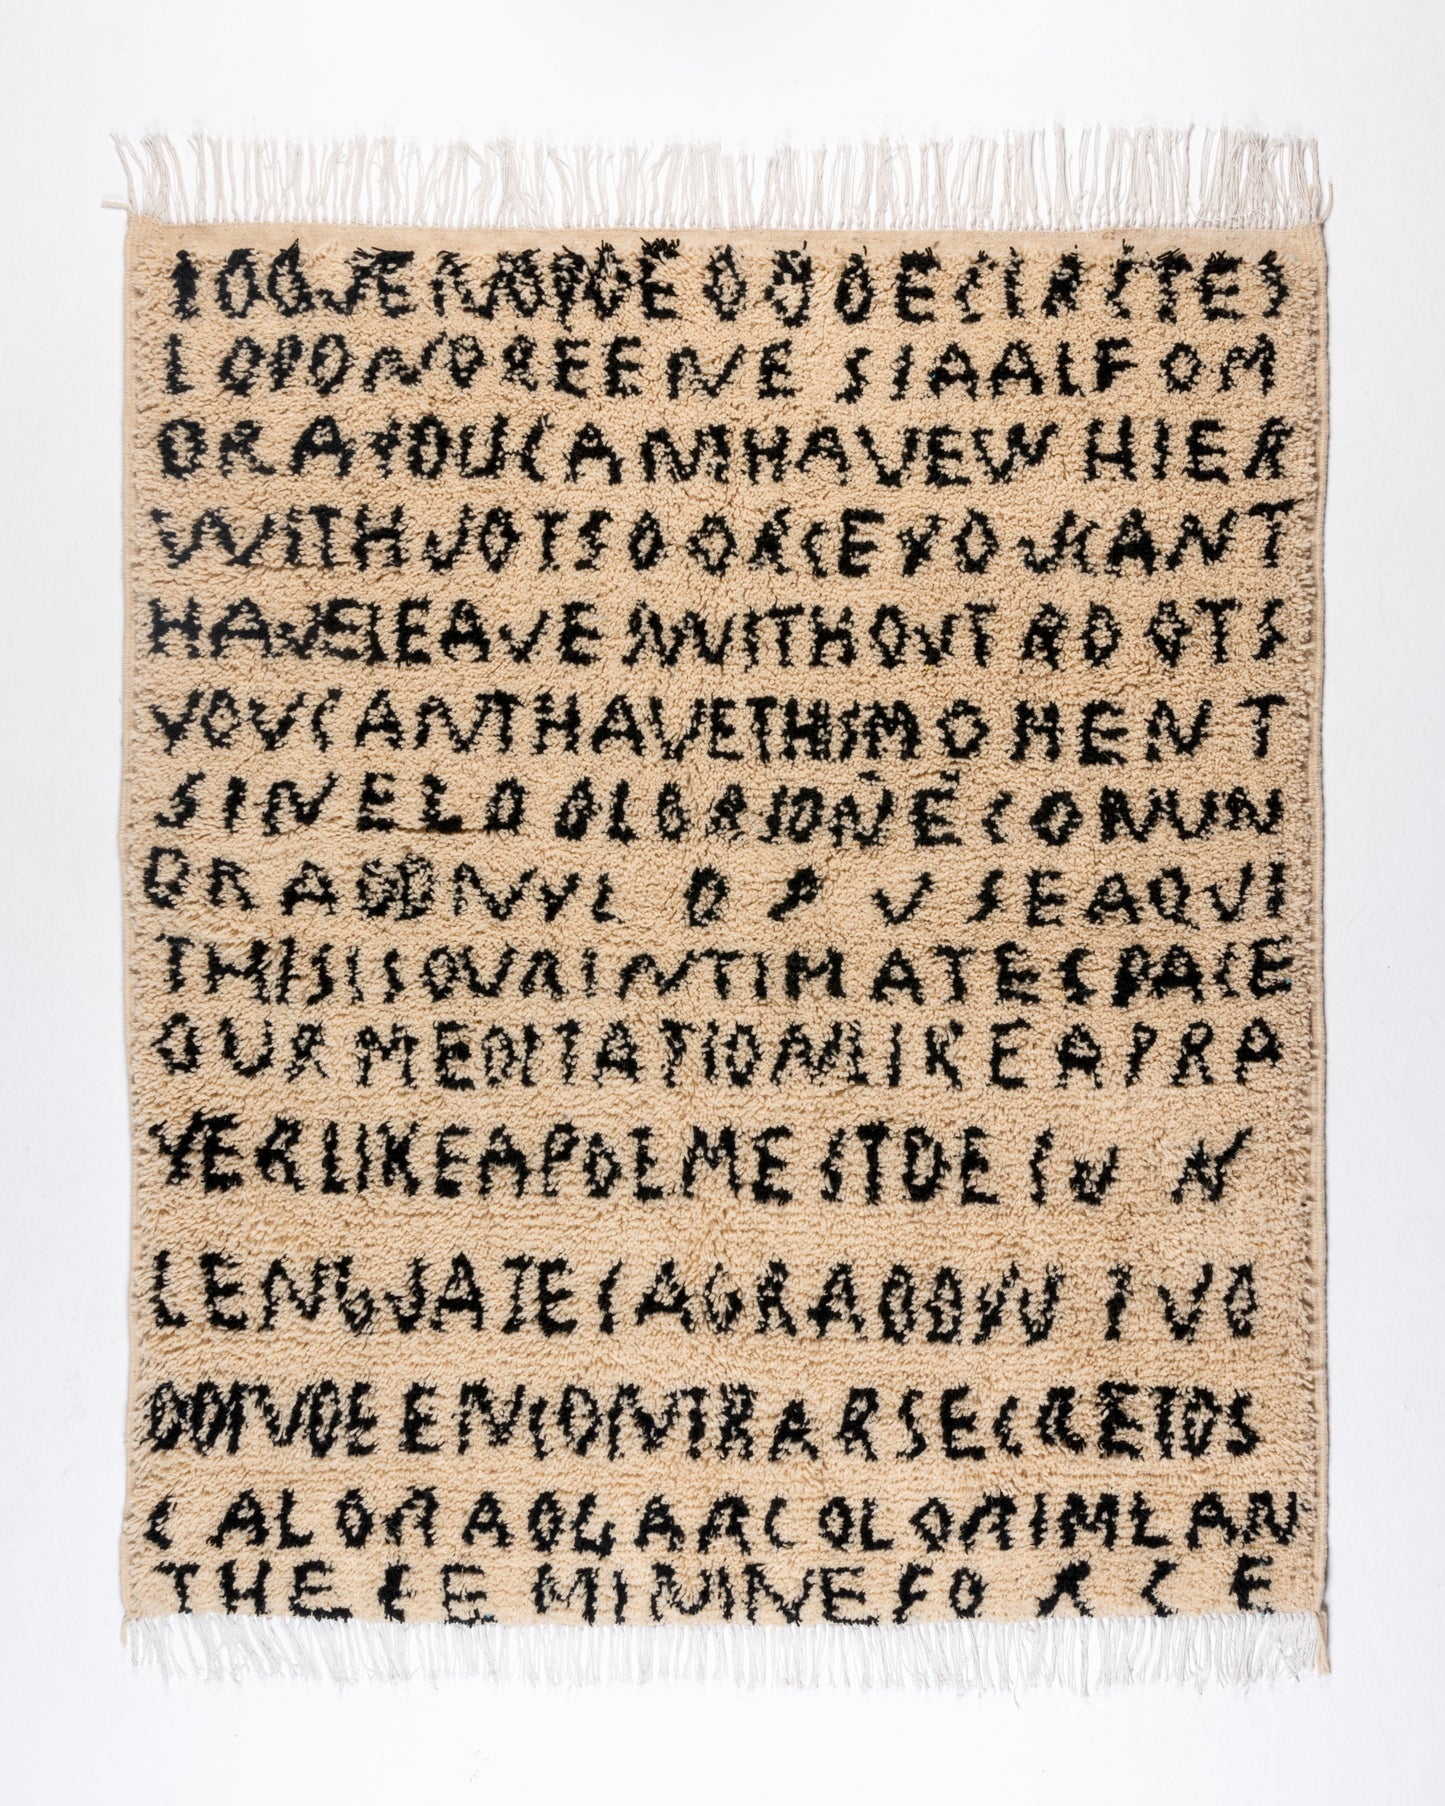 LOQUENOPUEDODECIRTES
LOPONDREENESIAALFOM
BRAYOUCANTHAVEWHIER
WITHJOTSOORCEYOUCANT
HAVELEAVENWITHOUTROOTS
YOUCANTHAVETHISMOMENT
SINELOOLORSOÑÉCONUN
DRAGONYLOPUSEAQUI
THISISOURINTIMATESPACE
OURMEDITATIONLIKEAPRA
YERLIKEAPOEMESTOESUN
LENGUAJESAGRADOUNIVO
DONDEENCONTRARSECRETOS
CALORAOGARCOLORIMLAN
THEFEMININEFORCE